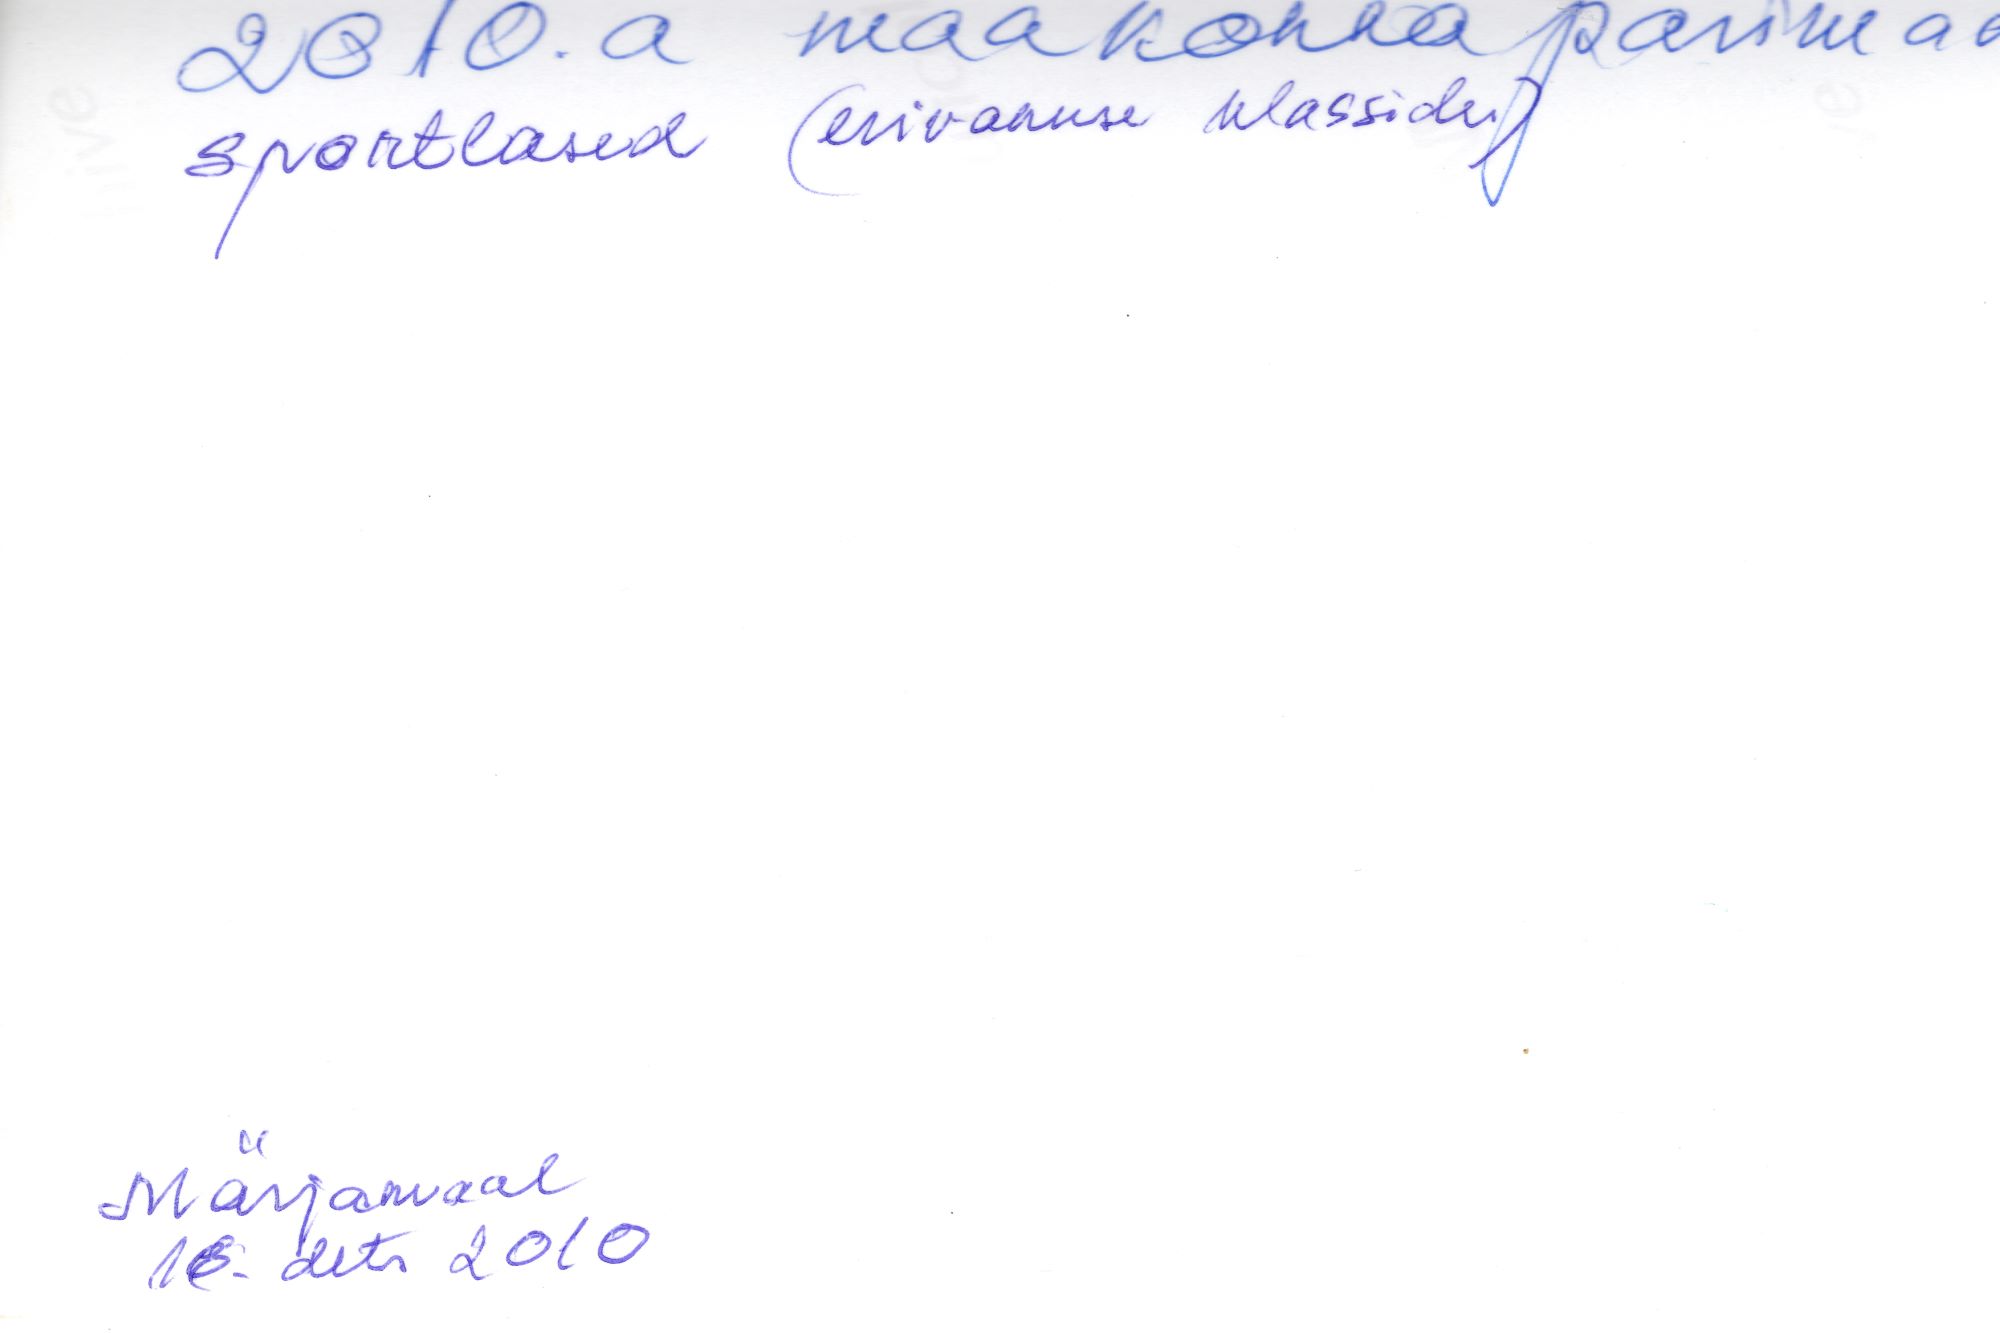 2010.a maakonna parimad
sportlased (erivanuse klassides)
Märjamaal
16. dets 2010